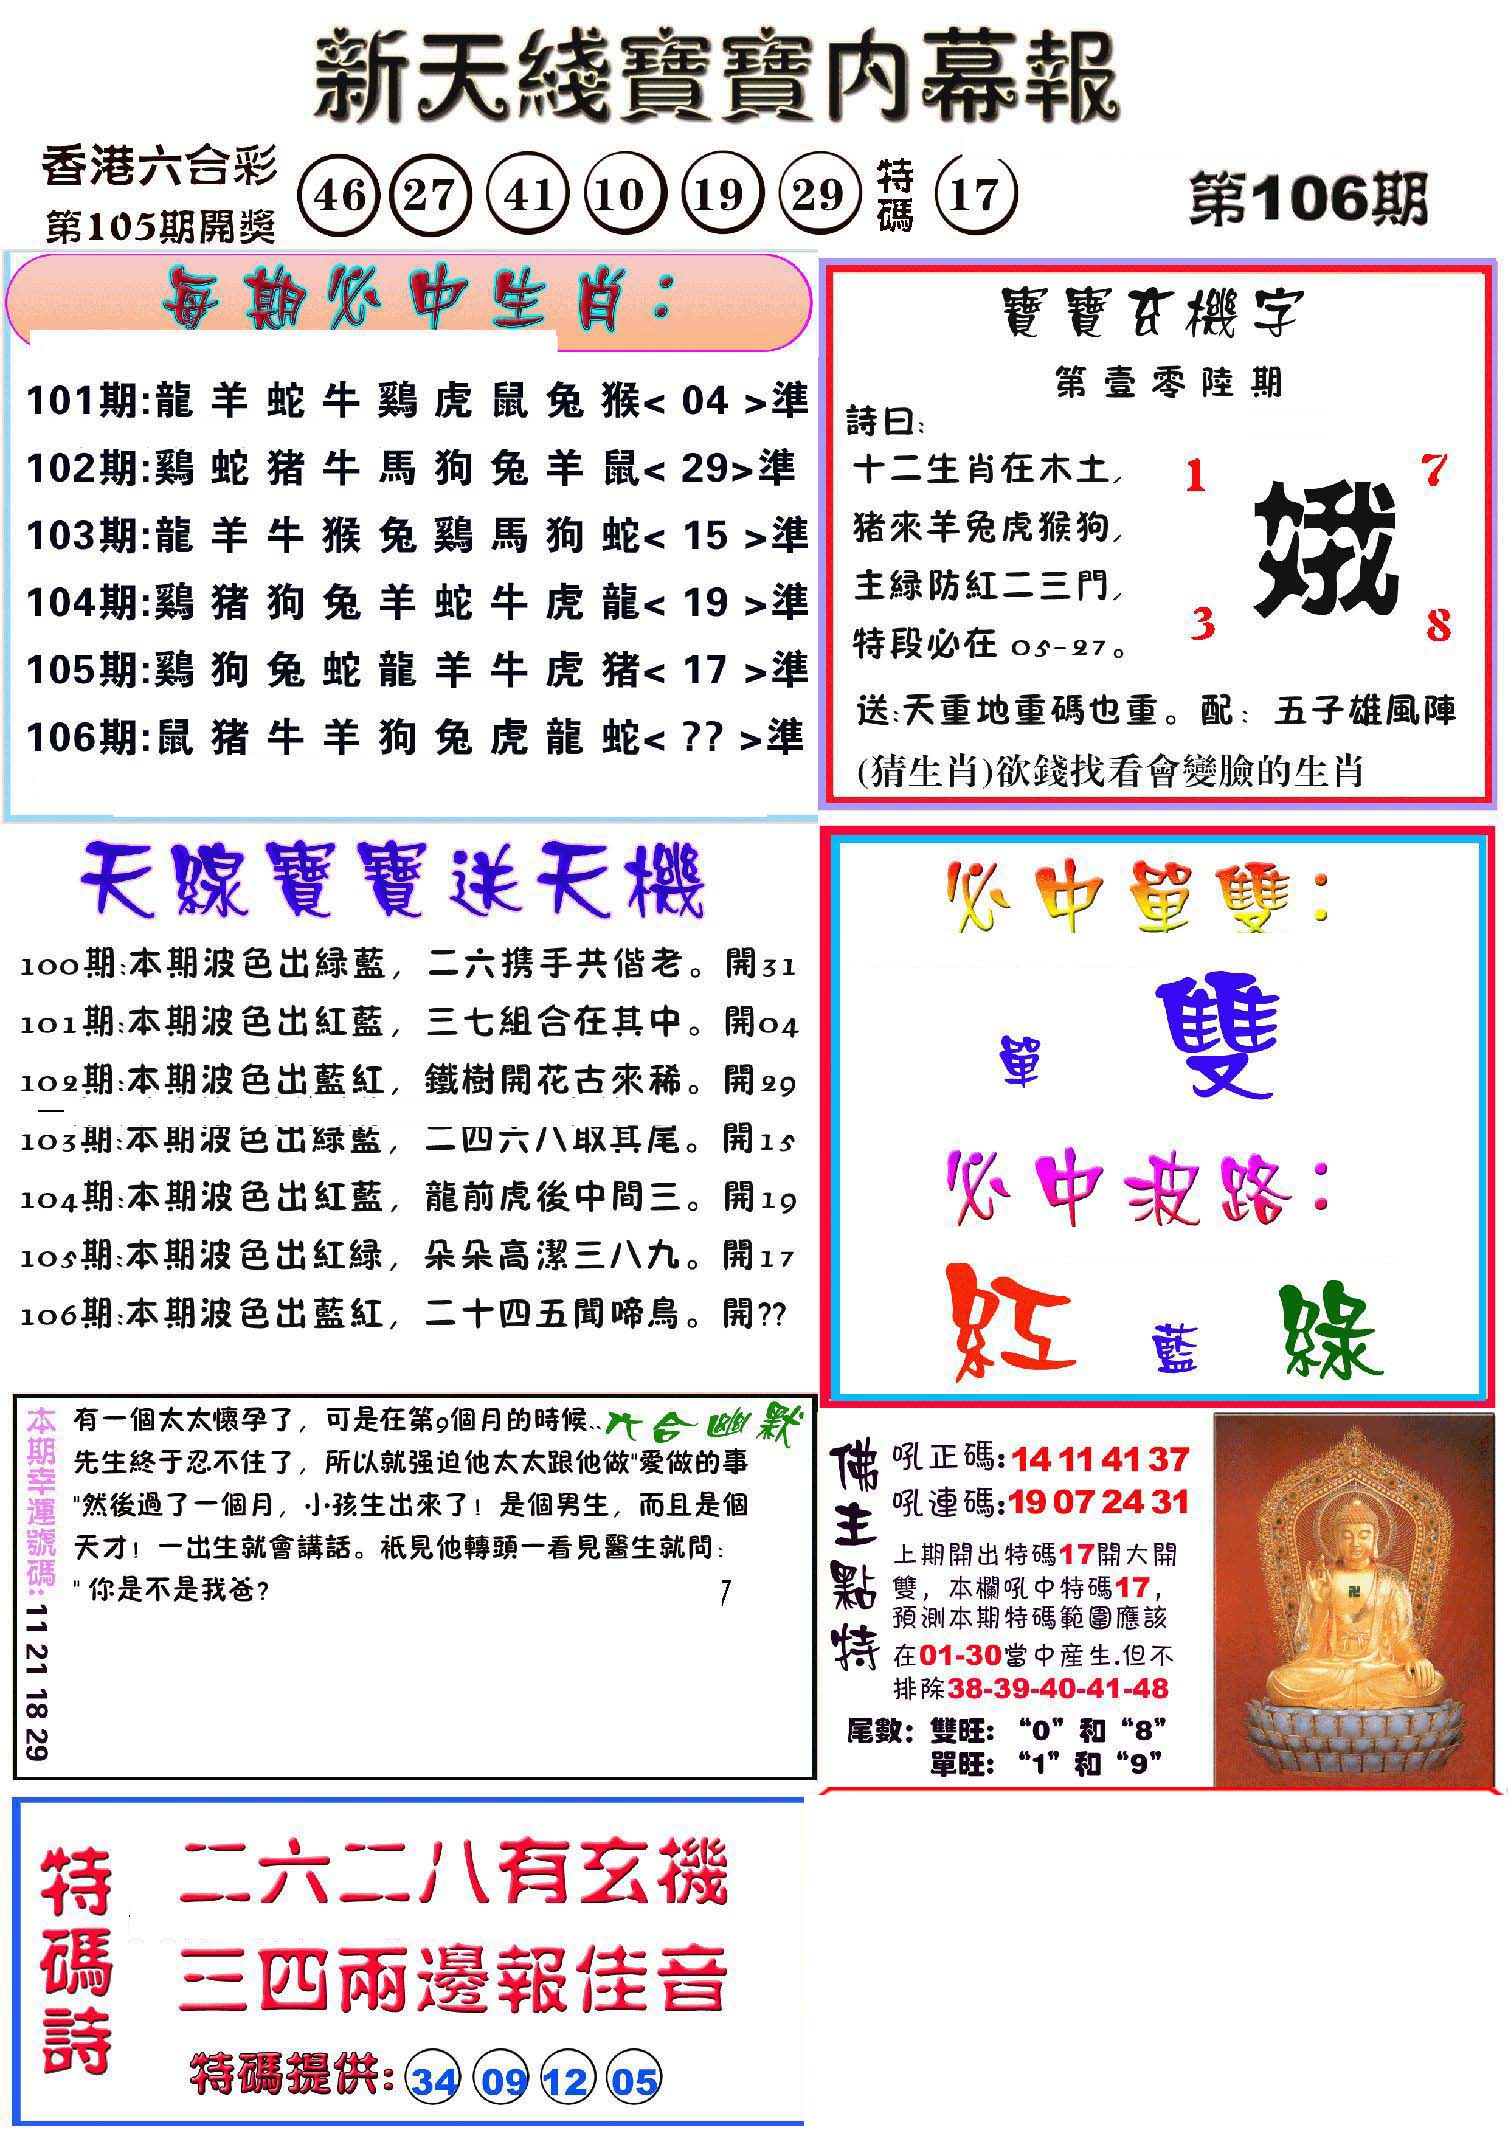 新天綫寶寶内幕報
香港六合彩
第105期開獎
46 27 41 10 19 29 特碼 17
第106期
每期必中生肖：
101期:龍羊蛇牛鷄虎鼠兔猴< 04 >準
102期:鷄蛇猪牛馬狗兔羊鼠< 29>準
103期:龍羊牛猴兔鷄馬狗蛇< 15 >準
104期:鷄猪狗兔羊蛇牛虎龍< 19 >準
105期:鷄狗兔蛇龍羊牛虎猪< 17 >準
106期:鼠猪牛羊狗兔虎龍蛇< ?? >準
寶寶玄機字
第壹零陸期
詩曰:
十二生肖在木土,
猪來羊兔虎猴狗,
主緑防紅二三門,
特段必在 05-27。
1 7
娥
3 8
送:天重地重碼也重。配: 五子雄風陣
(猜生肖)欲錢找看會變臉的生肖
天線寶寶送天機
100期:本期波色出緑藍, 二六携手共偕老。開31
101期:本期波色出紅藍, 三七組合在其中。開04
102期:本期波色出藍紅, 鐵樹開花古來稀。開29
103期:本期波色出緑藍, 二四六八取其尾。開15
104期:本期波色出紅藍, 龍前虎後中間三。開19
105期:本期波色出紅緑, 朵朵高潔三八九。開17
106期:本期波色出藍紅, 二十四五聞啼鳥。開??
必中單雙：
單 雙
必中波路：
紅 藍 綠
本期幸運號碼:11 21 18 29
六合幽默
有一個太太懷孕了, 可是在第9個月的時候..
先生終于忍不住了, 所以就强迫他太太跟他做"愛做的事
"然後過了一個月, 小孩生出來了! 是個男生, 而且是個
天才! 一出生就會講話。祇見他轉頭一看見醫生就問:
" 你是不是我爸?
7
佛主點特
吼正碼:14 11 41 37
吼連碼:19 07 24 31
上期開出特碼17開大開
雙, 本欄吼中特碼17,
預測本期特碼範圍應該
在01-30當中産生.但不
排除38-39-40-41-48
尾數: 雙旺: “0”和“8”
單旺: “1”和“9”
特碼詩
二六二八有玄機
三四兩邊報佳音
特碼提供: 34 09 12 05